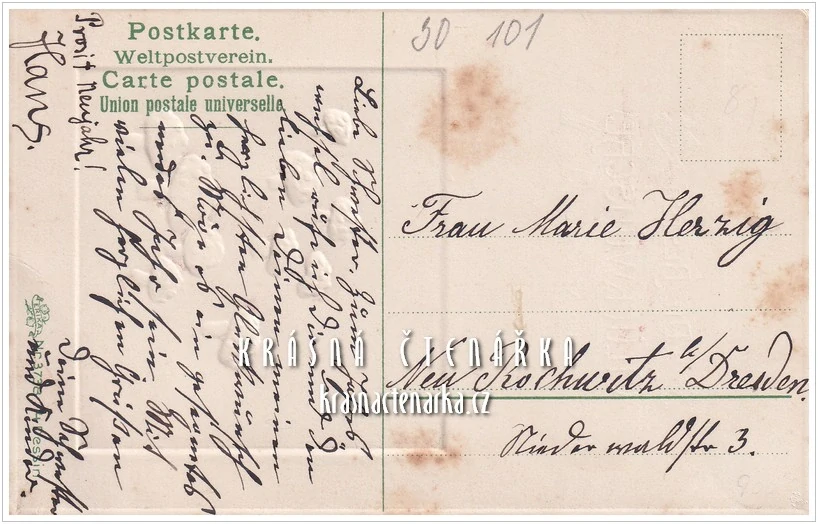 Postkarte.
Weltpostverein.
Carte postale.
Union postale universelle.
30 101
Prosit Neujahr!
Hans.
Liebe Schwester, zum Jahres
wechsel rufe ich Dir und
lieben Deinen meinen
herzlichsten Glückwunsch
zu. Möge es ein gesundes
Jahr sein. Mit
vielen herzlichen Grüßen
Deine Schwester
und Kinder.
Frau Marie Herzig
Neu Rochwitz b/Dresden.
Niederwaldstr 3.
KRÁSNÁ ČTENÁŘKA
krasnactenarka.cz